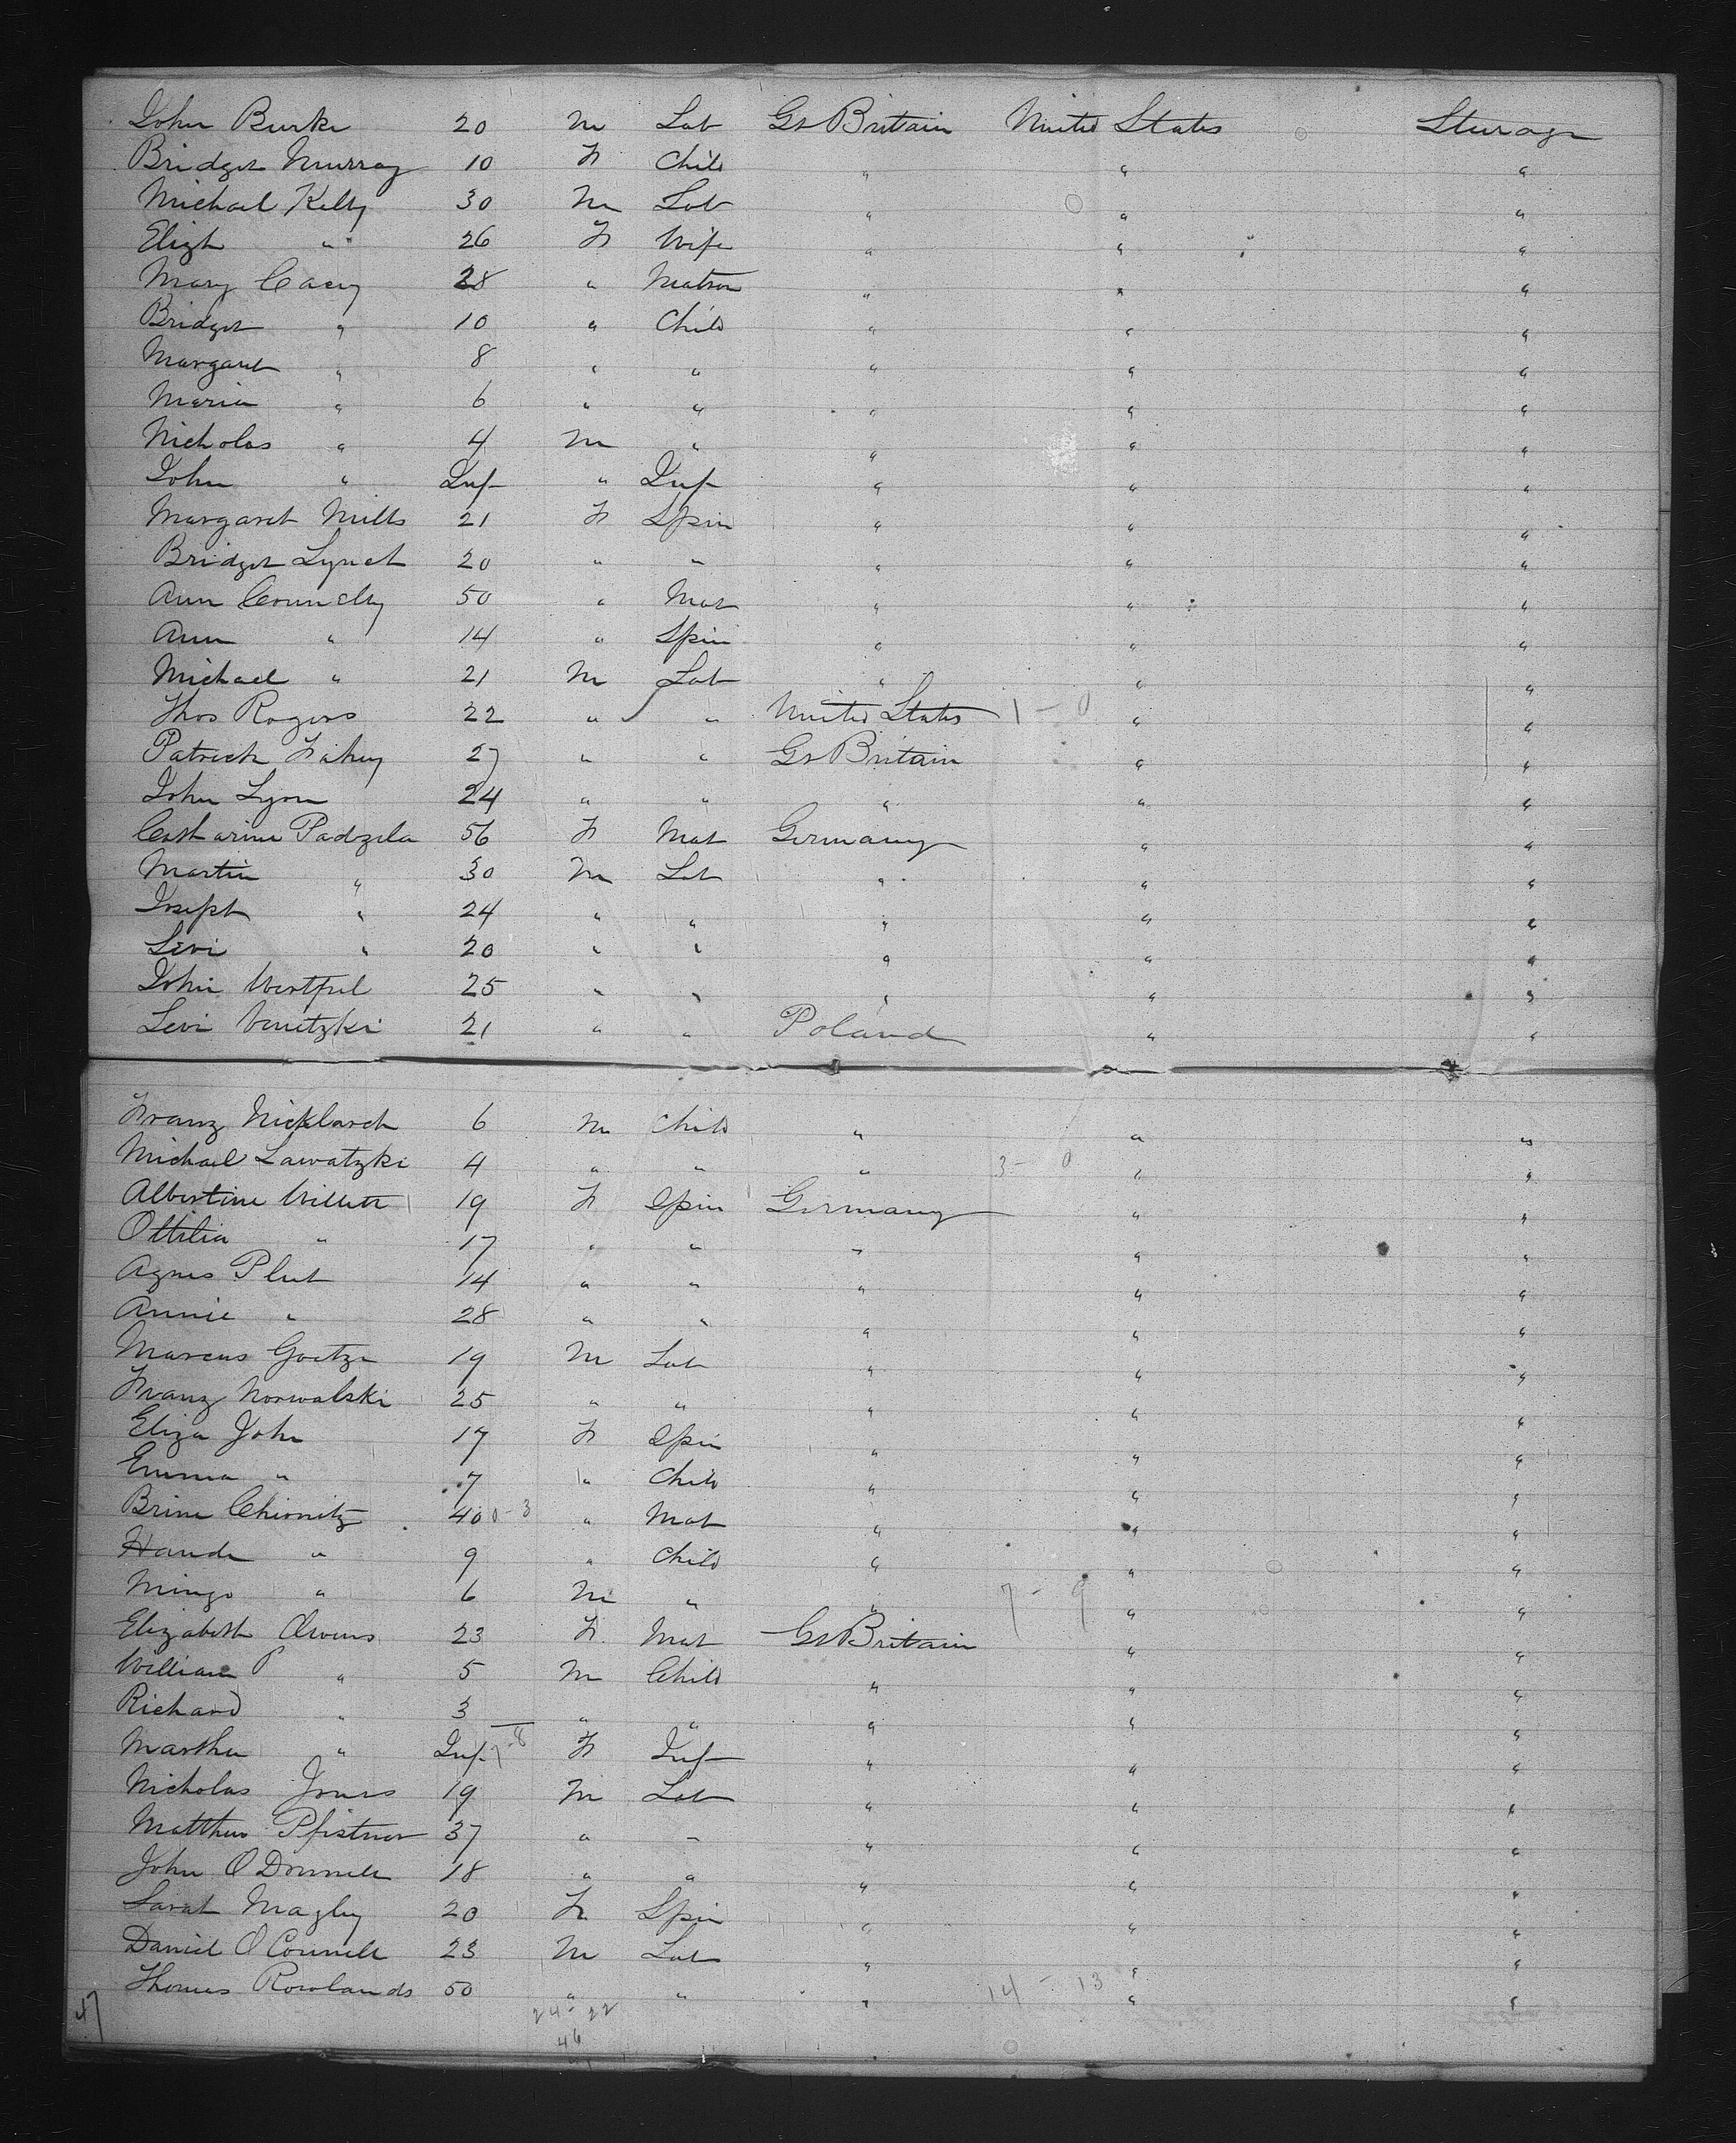 John Burke 20 M Lab Gr Britain United States Steerage
Bridget Murray 10 F Child " " "
Michael Kelly 30 M Lab " " "
Elizth " 26 F Wife " " "
Mary Casey 28 " Matron " " "
Bridget " 10 " Child " " "
Margaret " 8 " " " " "
Maria " 6 " " " " "
Nicholas " 4 M " " " "
John " Inf " Inf " " "
Margaret Mills 21 F Spin " " "
Bridget Lynch 20 " " " " "
Ann Connelly 50 " Mat " " "
Ann " 14 " Spin " " "
Michael " 21 M Lab " " "
Thos Rogers 22 " " United States 1 - 0 " "
Patrick Fahey 27 " " Gr Britain " "
John Lyon 24 " " " " "
Catharine Padzela 56 F Mat Germany " "
Martin " 30 M Lab " " "
Joseph " 24 " " " " "
Levi " 20 " " " " "
John Westfel 25 " " " " "
Levi 21 " " Poland " "
Franz 6 M Child " " "
Michael Lawatzki 4 " " " 3 - 0 " "
Albertine Willett 19 F Spin Germany " "
Ottilia " 17 " " " " "
Agnes Plut 14 " " " " "
Annie " 28 " " " " "
Marcus Goetze 19 M Lab " " "
Franz Norwalski 25 " " " " "
Eliza John 17 F Spin " " "
Emma " 7 " Child " " "
Brine Chiernitz 40 0-3 " Mat " " "
Hande " 9 " Child " " "
Mingo " 6 M " " 7 - 9 " "
Elizabeth Owens 23 F Mat Gr Britain " "
William P " 5 M Child " " "
Richard " 3 " " " " "
Martha " Inf 7-8 F Inf " " "
Nicholas Jones 19 M Lab " " "
Matthew Pfistner 37 " " " " "
John O Donnell 18 " " " " "
Sarah Magley 20 F Spin " " "
Daniel O Connell 23 M Lab " " "
Thomas Rowlands 50 " " " 14 - 13 " "
47 24 - 22
46